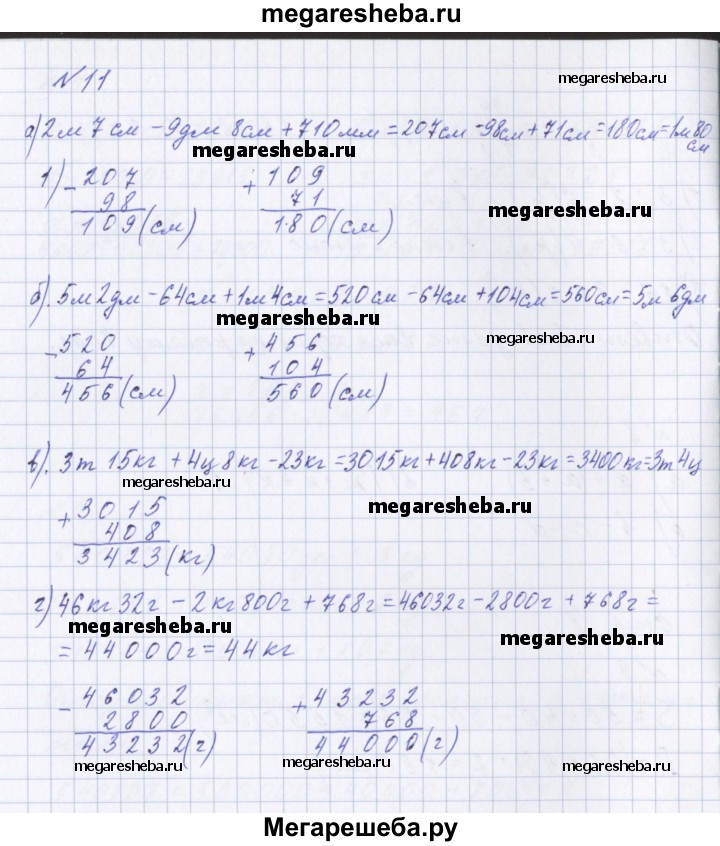 megaresheba.ru
N 11
megaresheba.ru
а) 2м 7см - 9дм 8см + 710мм = 207см - 98см + 71см = 180см = 1м 80 см
megaresheba.ru
1) - 207 + 109
98 71
109 (см) 180 (см)
megaresheba.ru
б). 5м 2дм - 64см + 1м 4см = 520см - 64см + 104см = 560см = 5м 6дм
megaresheba.ru
- 520 + 456
64 104
megaresheba.ru
456 (см) 560 (см)
в). 3т 15кг + 4ц 8кг - 23кг = 3015кг + 408кг - 23кг = 3400кг = 3т 4ц
megaresheba.ru
megaresheba.ru
+ 3015
408
3423 (кг)
г) 46кг 32г - 2кг 800г + 768г = 46032г - 2800г + 768г =
megaresheba.ru
megaresheba.ru
= 44000г = 44кг
- 46032 + 43232
2800 768
43232 (г) 44000 (г)
megaresheba.ru
megaresheba.ru
megaresheba.ru
Мегарешеба.ру